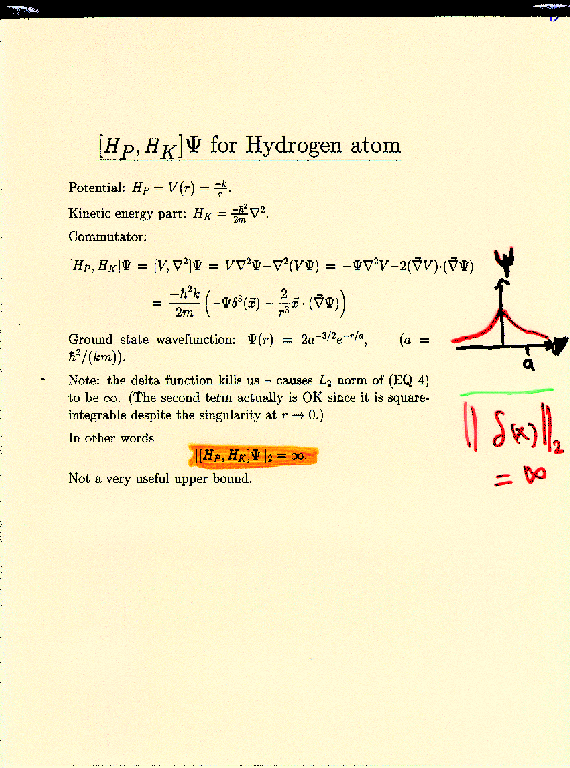 [H_P, H_K]Ψ for Hydrogen atom
Potential: H_P = V(r) = -k/r.
Kinetic energy part: H_K = -ħ²/2m ∇².
Commutator:
[H_P, H_K]Ψ = [V, ∇²]Ψ = V∇²Ψ−∇²(VΨ) = −Ψ∇²V−2(∇⃗V)·(∇⃗Ψ)
= -ħ²k/2m (−Ψδ³(x⃗) − 2/r³ x⃗ · (∇⃗Ψ))
Ground state wavefunction: Ψ(r) = 2a^{-3/2}e^{-r/a}, (a =
ħ²/(km)).
Note: the delta function kills us - causes L₂ norm of (EQ 4)
to be ∞. (The second term actually is OK since it is square-
integrable despite the singularity at r → 0.)
In other words
||[H_P, H_K]Ψ||₂ = ∞
Not a very useful upper bound.
Ψ
a
|| δ(x) ||₂
= ∞